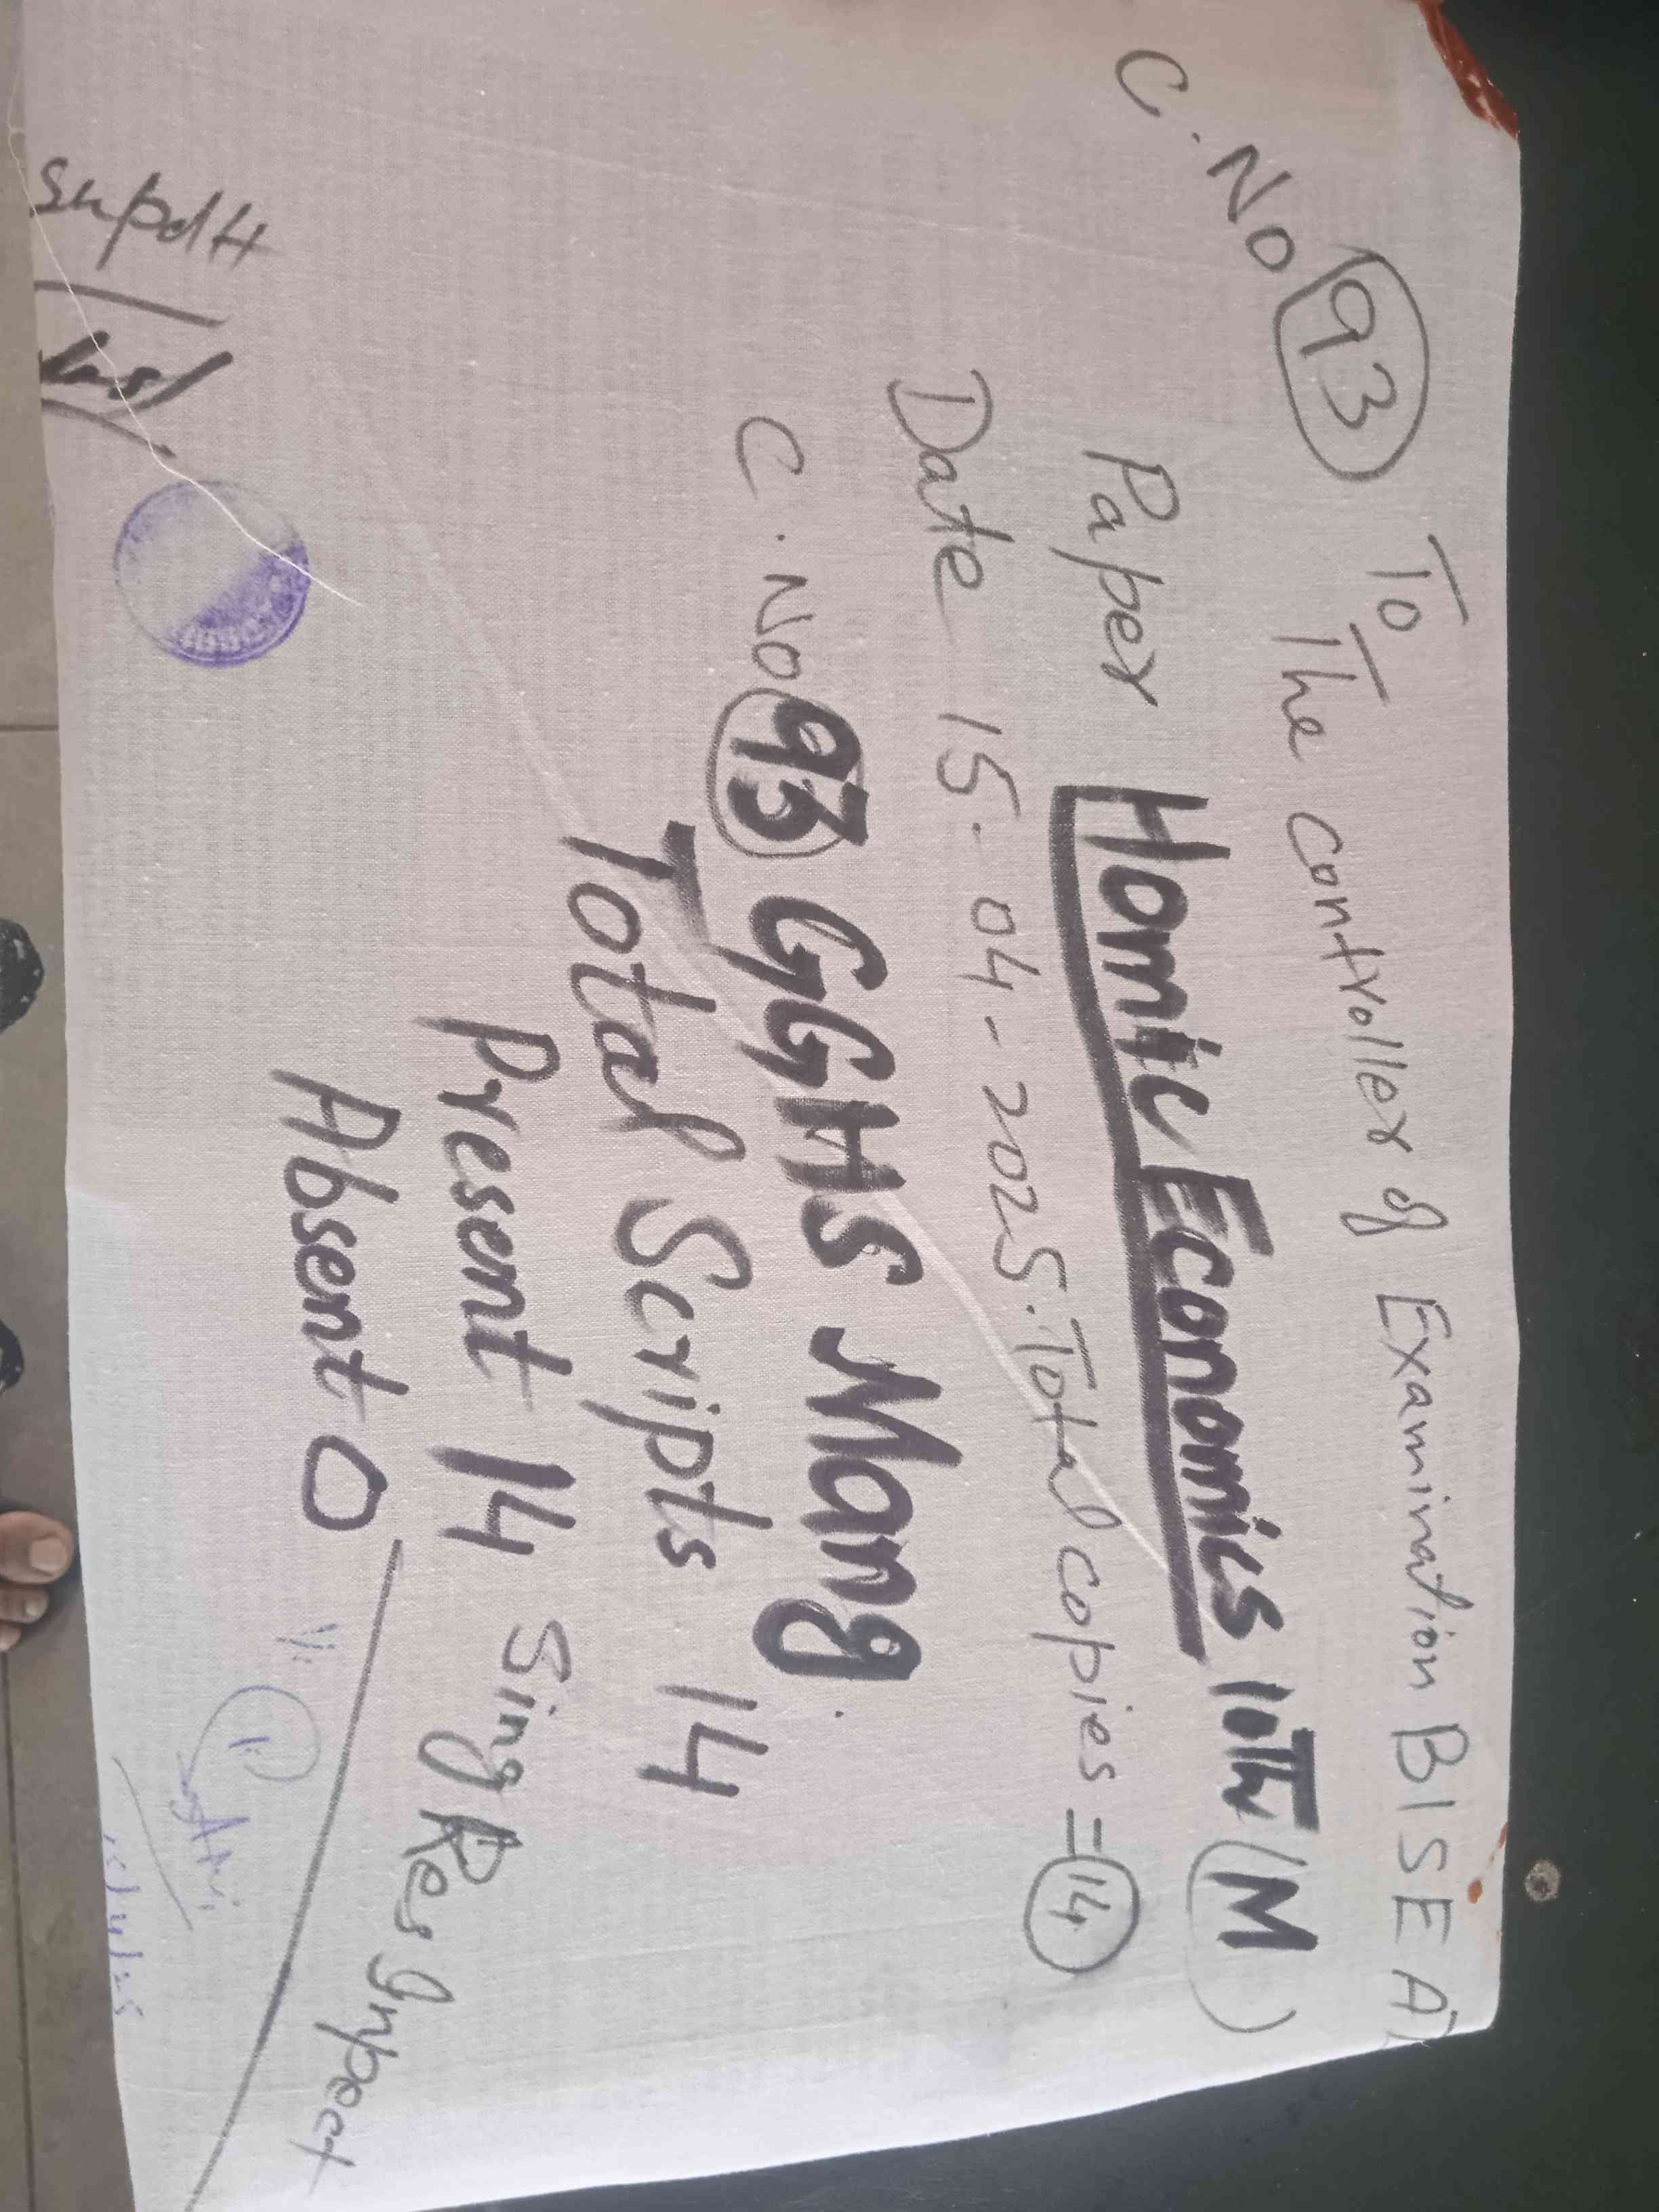 C. No 93
To
The controller of Examination BISE A
Paper Homic Economics 10Th (M)
Date 15-04-2025. Total copies = 14
C. No 93 GGHS Mang
Total Scripts 14
Present 14
Absent 0
Sing Res Inpect
Supdtt
15/4/25